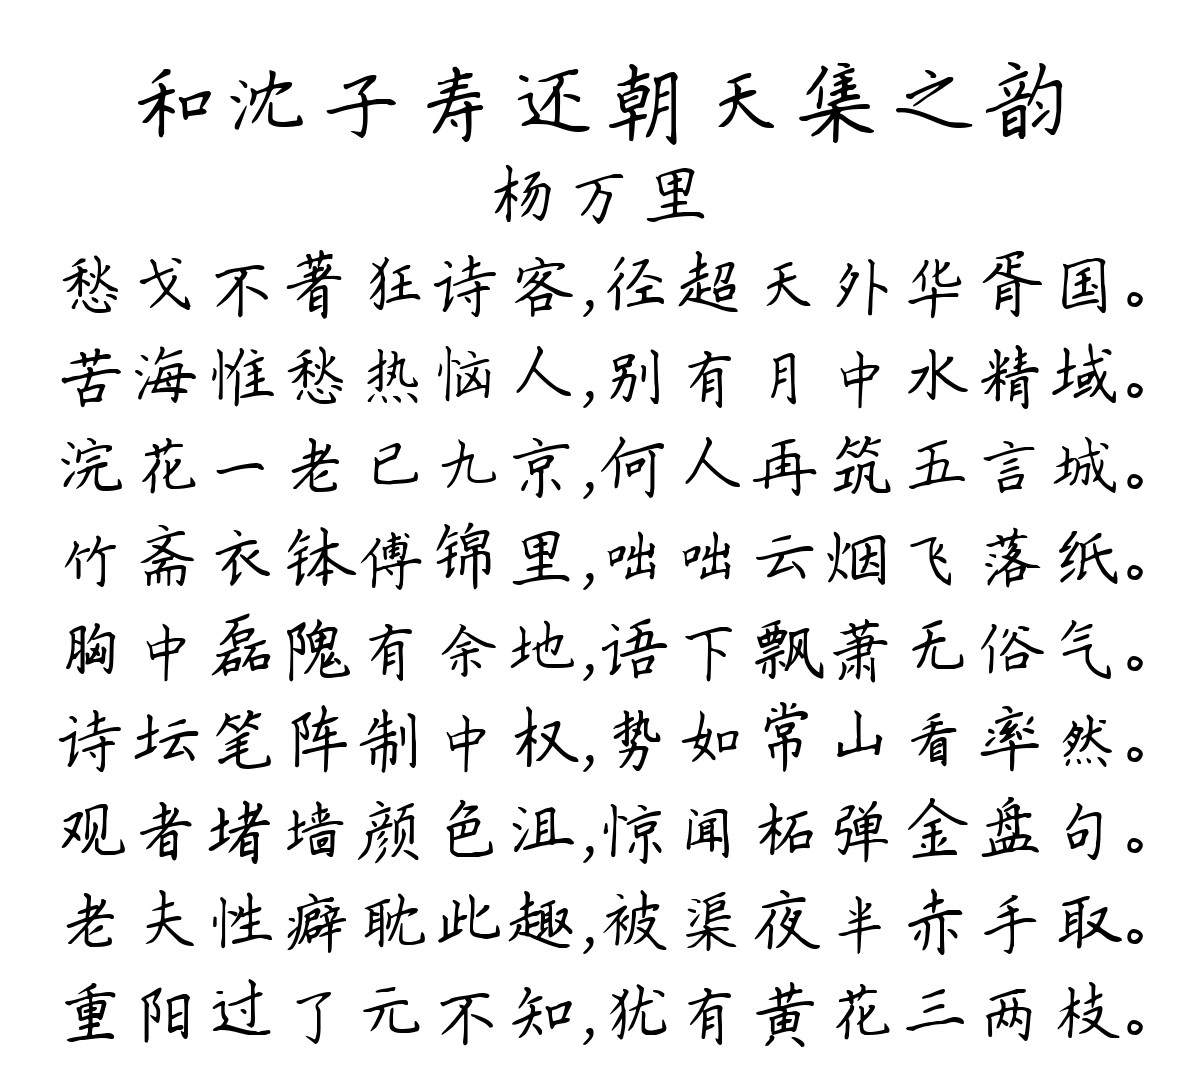 和沈子寿还朝天集之韵
杨万里
愁戈不著狂诗客,径超天外华胥国。
苦海惟愁热恼人,别有月中水精域。
浣花一老已九京,何人再筑五言城。
竹斋衣钵傅锦里,咄咄云烟飞落纸。
胸中磊隗有余地,语下飘萧无俗气。
诗坛笔阵制中权,势如常山看率然。
观者堵墙颜色沮,惊闻柘弹金盘句。
老夫性癖耽此趣,被渠夜半赤手取。
重阳过了元不知,犹有黄花三两枝。